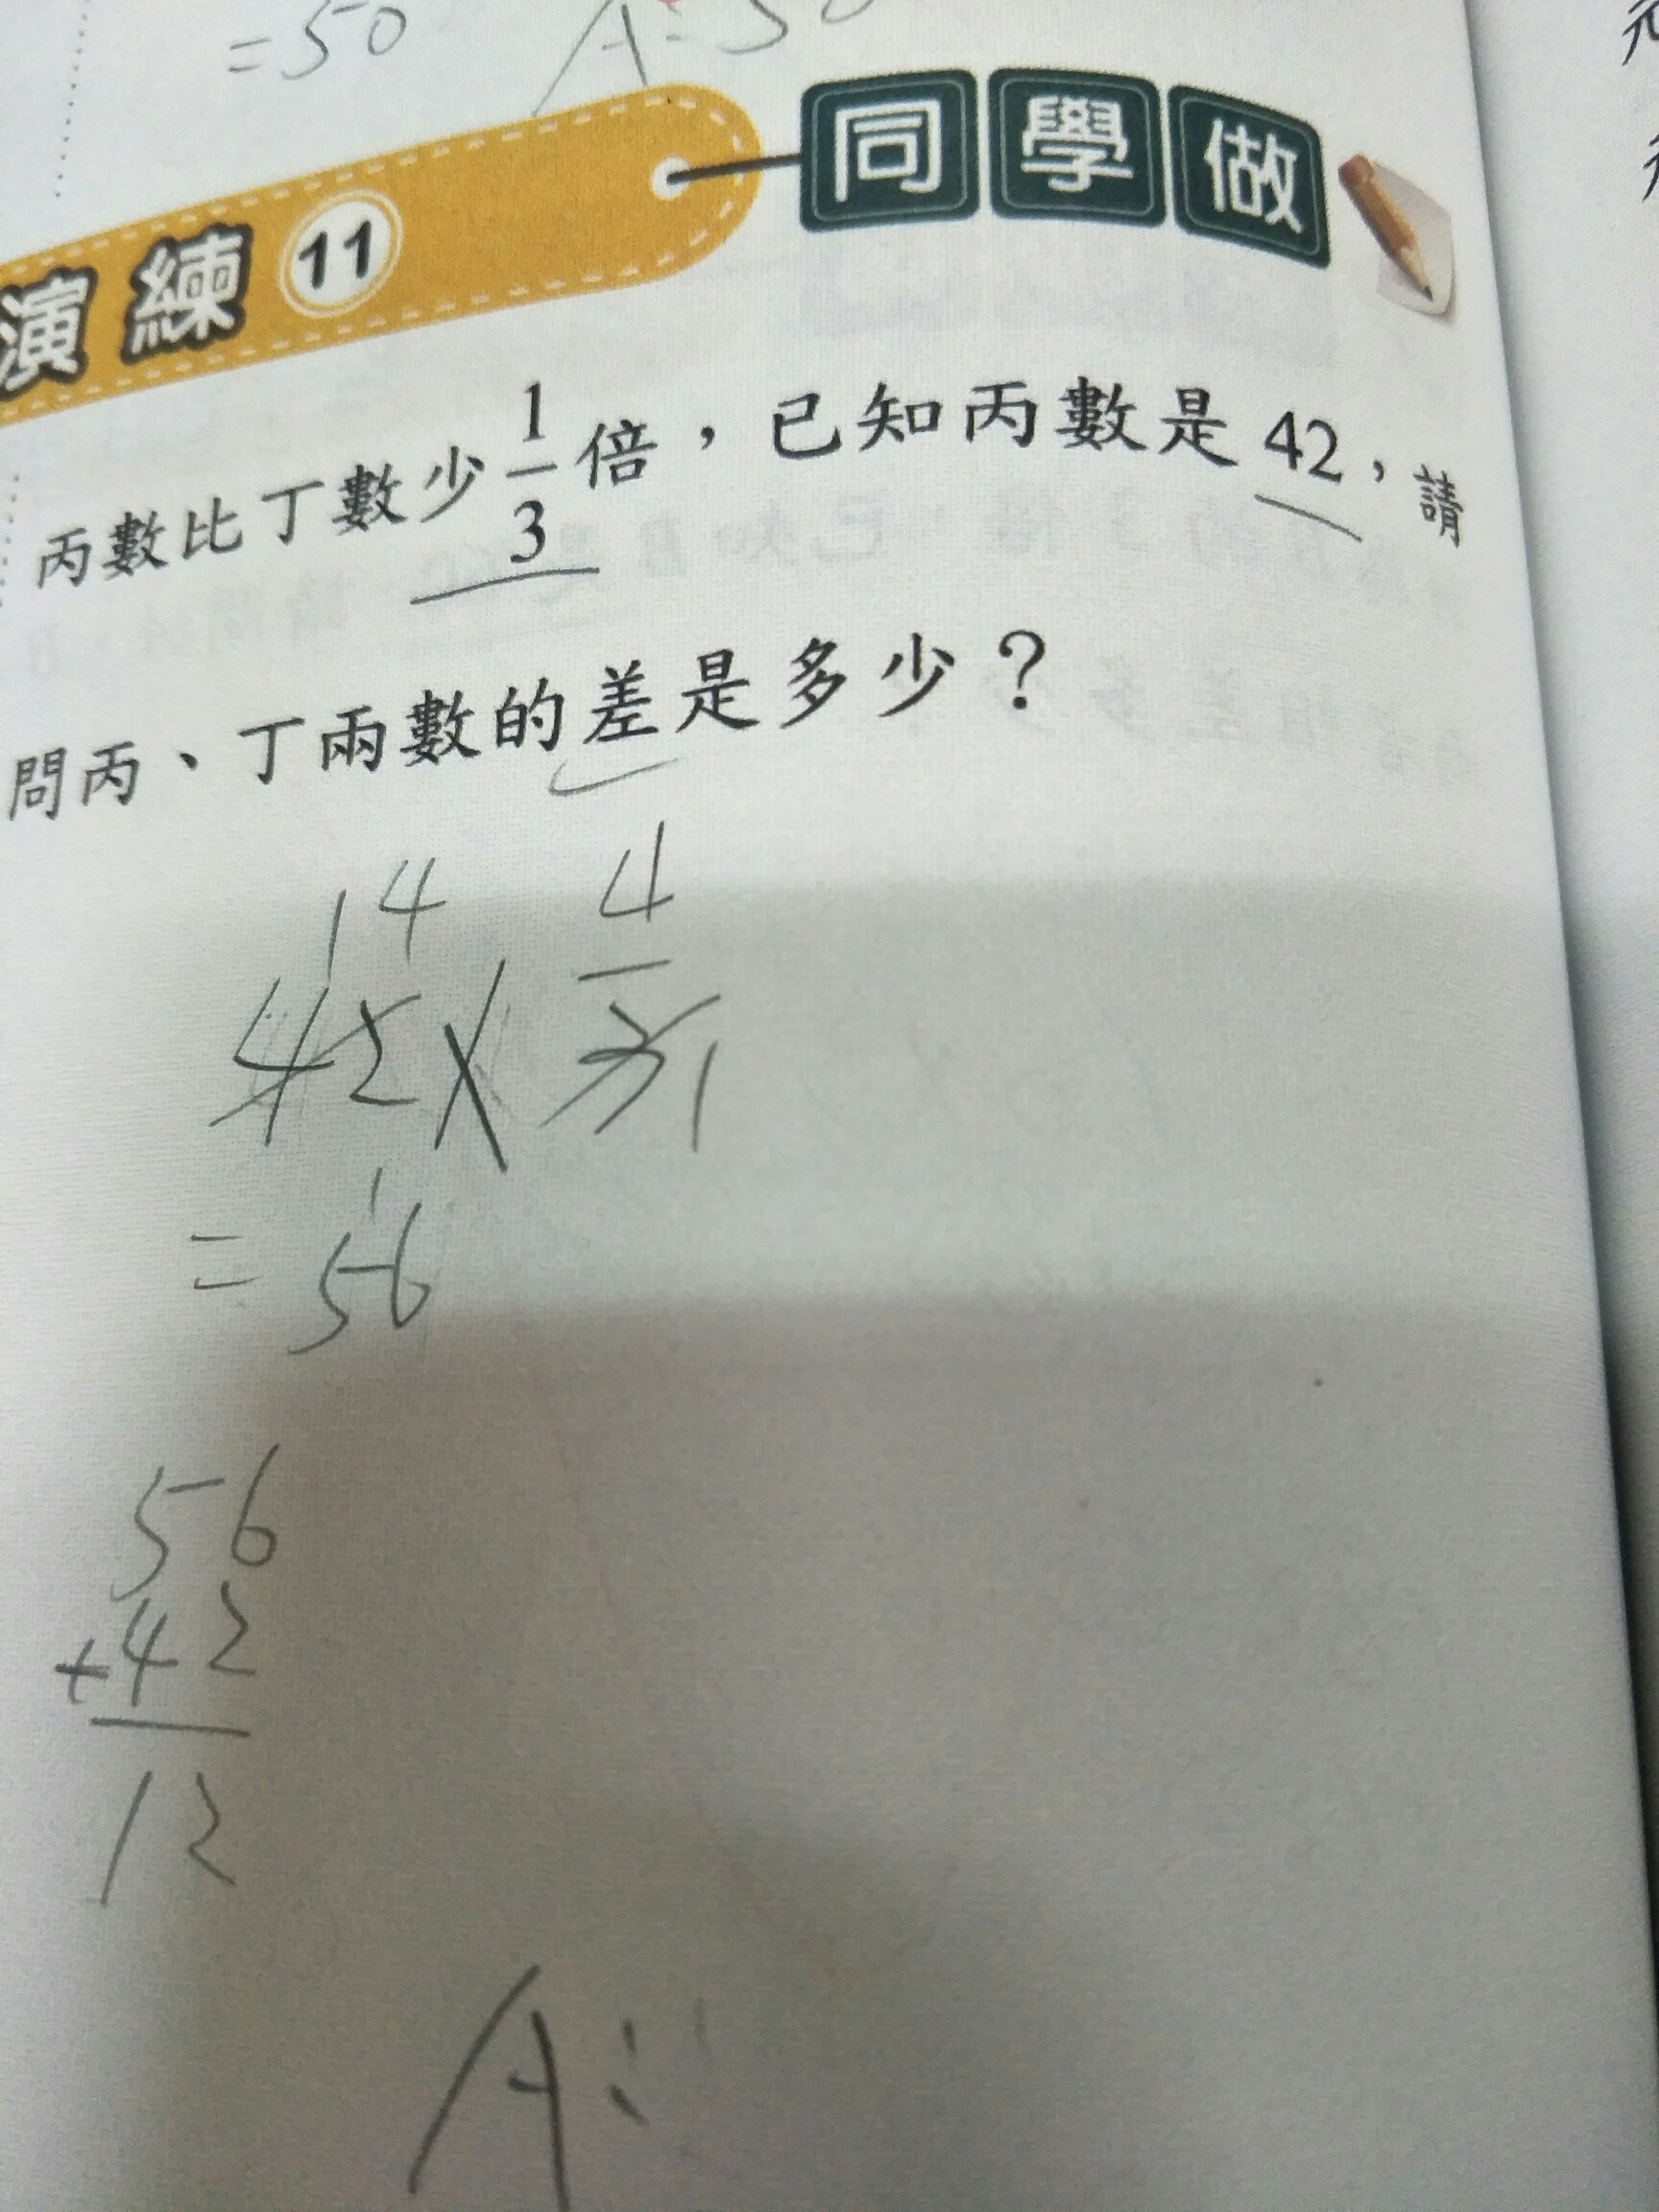 =50 A:50
演練 11 同學做
丙數比丁數少 1/3 倍，已知丙數是 42，請
問丙、丁兩數的差是多少？
14 4
42 × 3 1
1
= 56
56
+42
12
A: